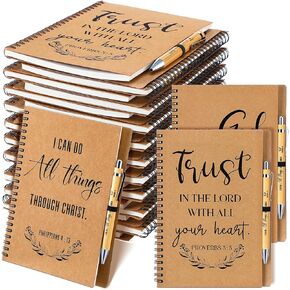 Trust
IN THE LORD
WITH ALL
your heart.
PROVERBS 3:5
I CAN DO
All things
THROUGH CHRIST.
PHILIPPIANS 4:13
Trust
IN THE LORD
WITH ALL
your heart.
PROVERBS 3:5